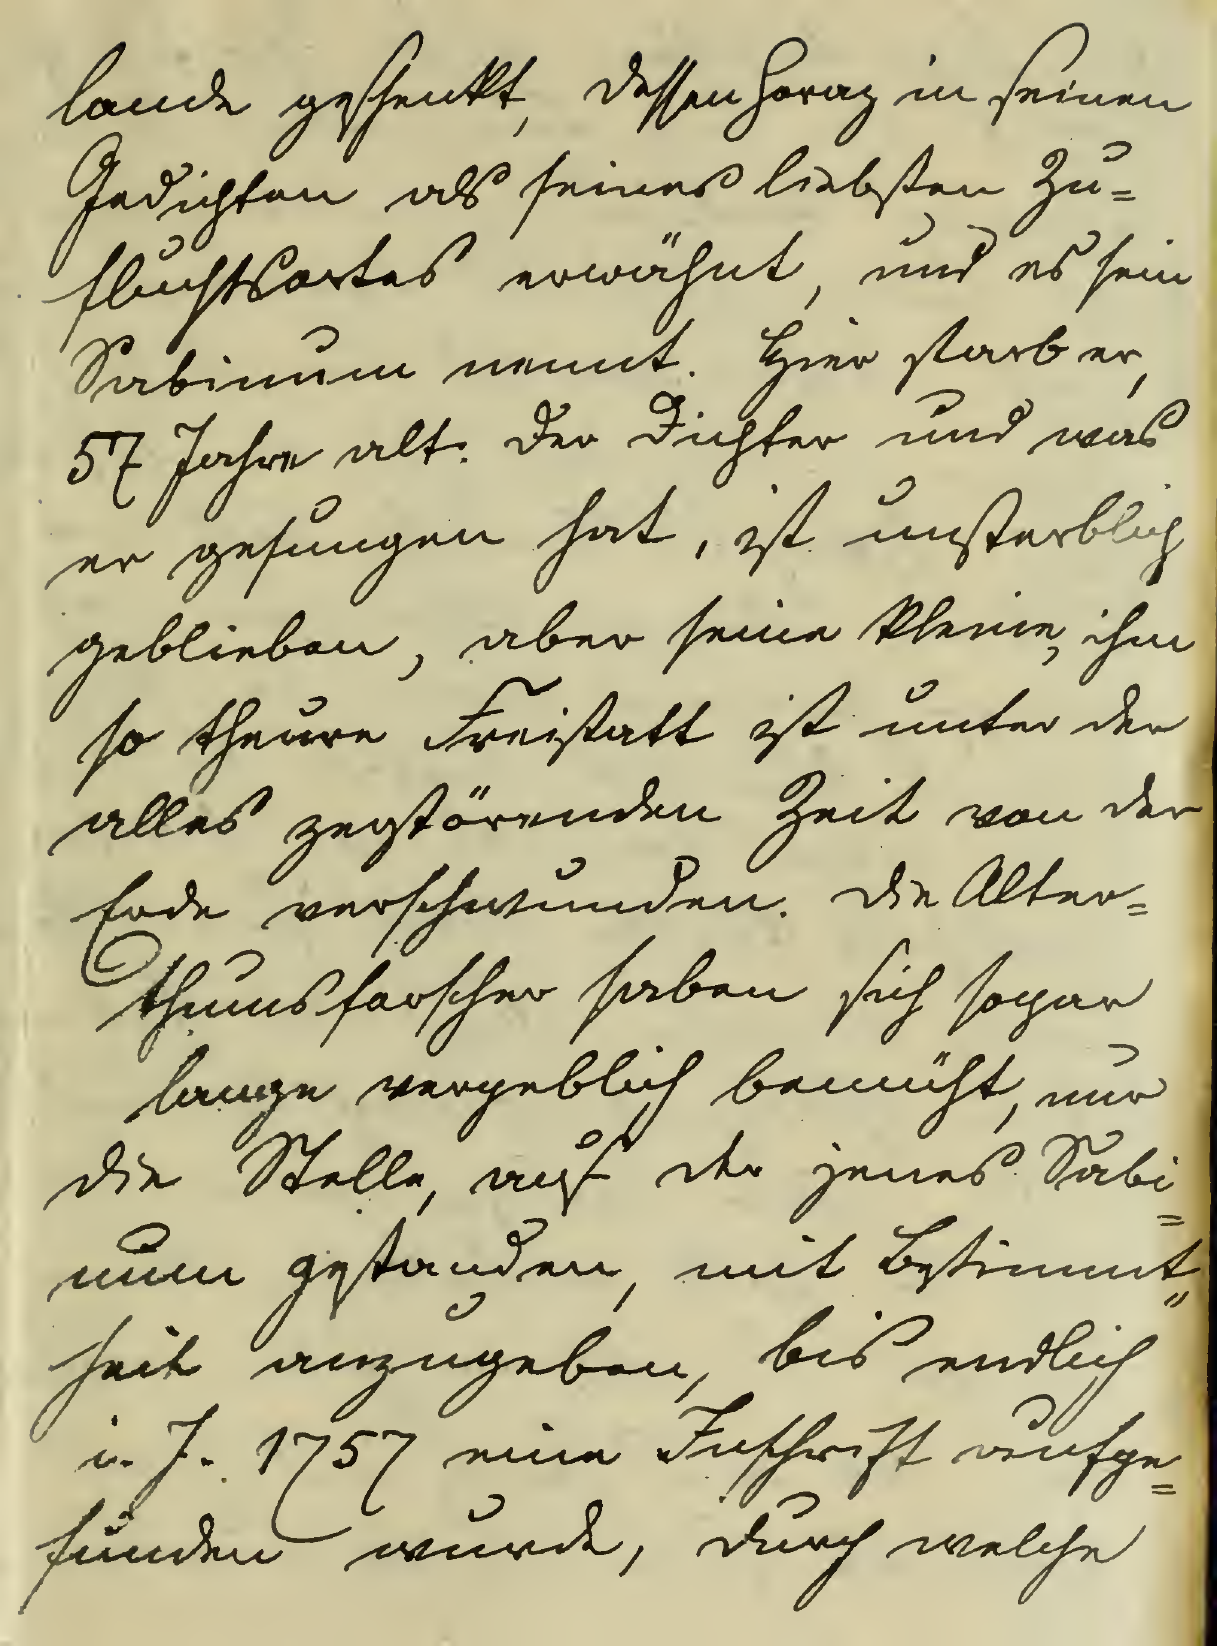 lande geschenkt, dessen Horaz in seinen
Gedichten als seines liebsten Zu=
fluchtsortes erwähnt, und es sein
Sabinum nennt. Hier starb er,
57 Jahre alt. Der Dichter und was
er gesungen hat, ist unsterblich
geblieben, aber seine kleine, ihm
so theure Freistatt ist unter der
alles zerstörenden Zeit von der
Erde verschwunden. Die Alter=
thumsforscher haben sich sogar
lange vergeblich bemüht, nur
die Stelle, auf der jenes Sabi=
num gestanden, mit Bestimmt=
heit anzugeben, bis endlich
i. J. 1757 eine Inschrift aufge=
funden wurde, durch welche